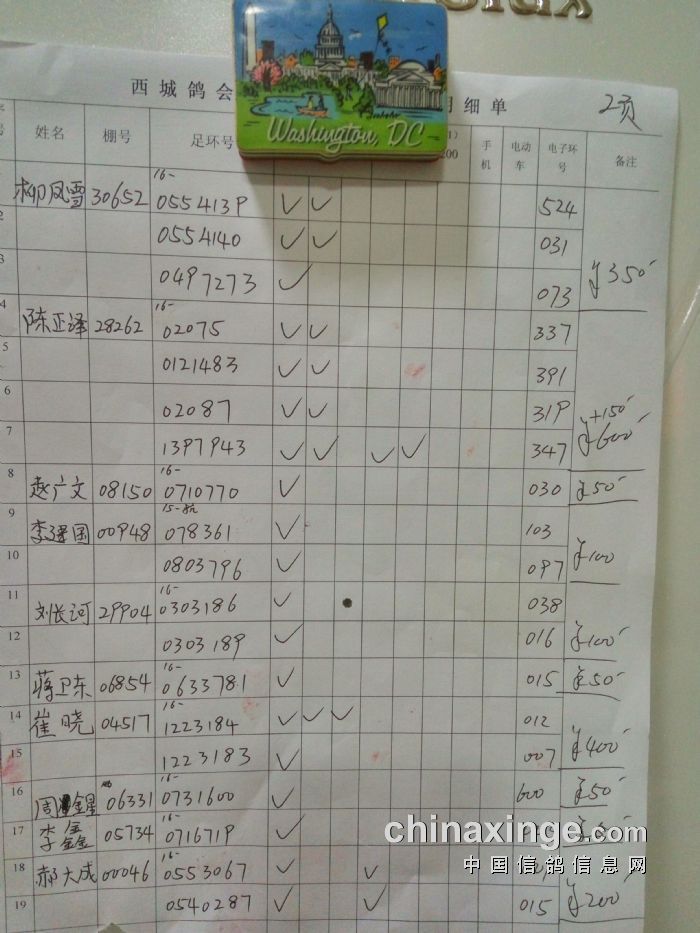 西城鸽会 明细单 2页
号 姓名 棚号 足环号 200 手机 电动车 电子环号 备注
16-
柳凤雪 30652 0554139 ✓ ✓ 524
2 0554140 ✓ ✓ 031
3 0497273 ✓ 073 ¥350
16-
4 陈正泽 28262 02075 ✓ ✓ 337
5 0121483 ✓ ✓ 391
6 02087 ✓ ✓ 319 +150
7 1397943 ✓ ✓ ✓ ✓ 347 ¥600
16-
8 赵广文 08150 0710770 ✓ 030 ¥50
15-航
9 李强国 00948 078361 ✓ 103
10 0803796 ✓ 097 ¥100
16-
11 刘长河 29904 0303186 ✓ 038
12 0303189 ✓ 016 ¥100
16-
13 蒋卫东 06854 0633781 ✓ 015 ¥50
16-
14 崔晓 04517 1223184 ✓ ✓ ✓ 012
15 1223183 ✓ 007 ¥400
16-
16 周金星 06331 0731600 ✓ 600 ¥50
16-
17 李鑫 05734 0716719 ✓
16-
18 郝大成 00046 0553067 ✓ ✓
19 0540287 ✓ ✓ 015 ¥200
Washington, DC
chinaxinge.com
中国信鸽信息网